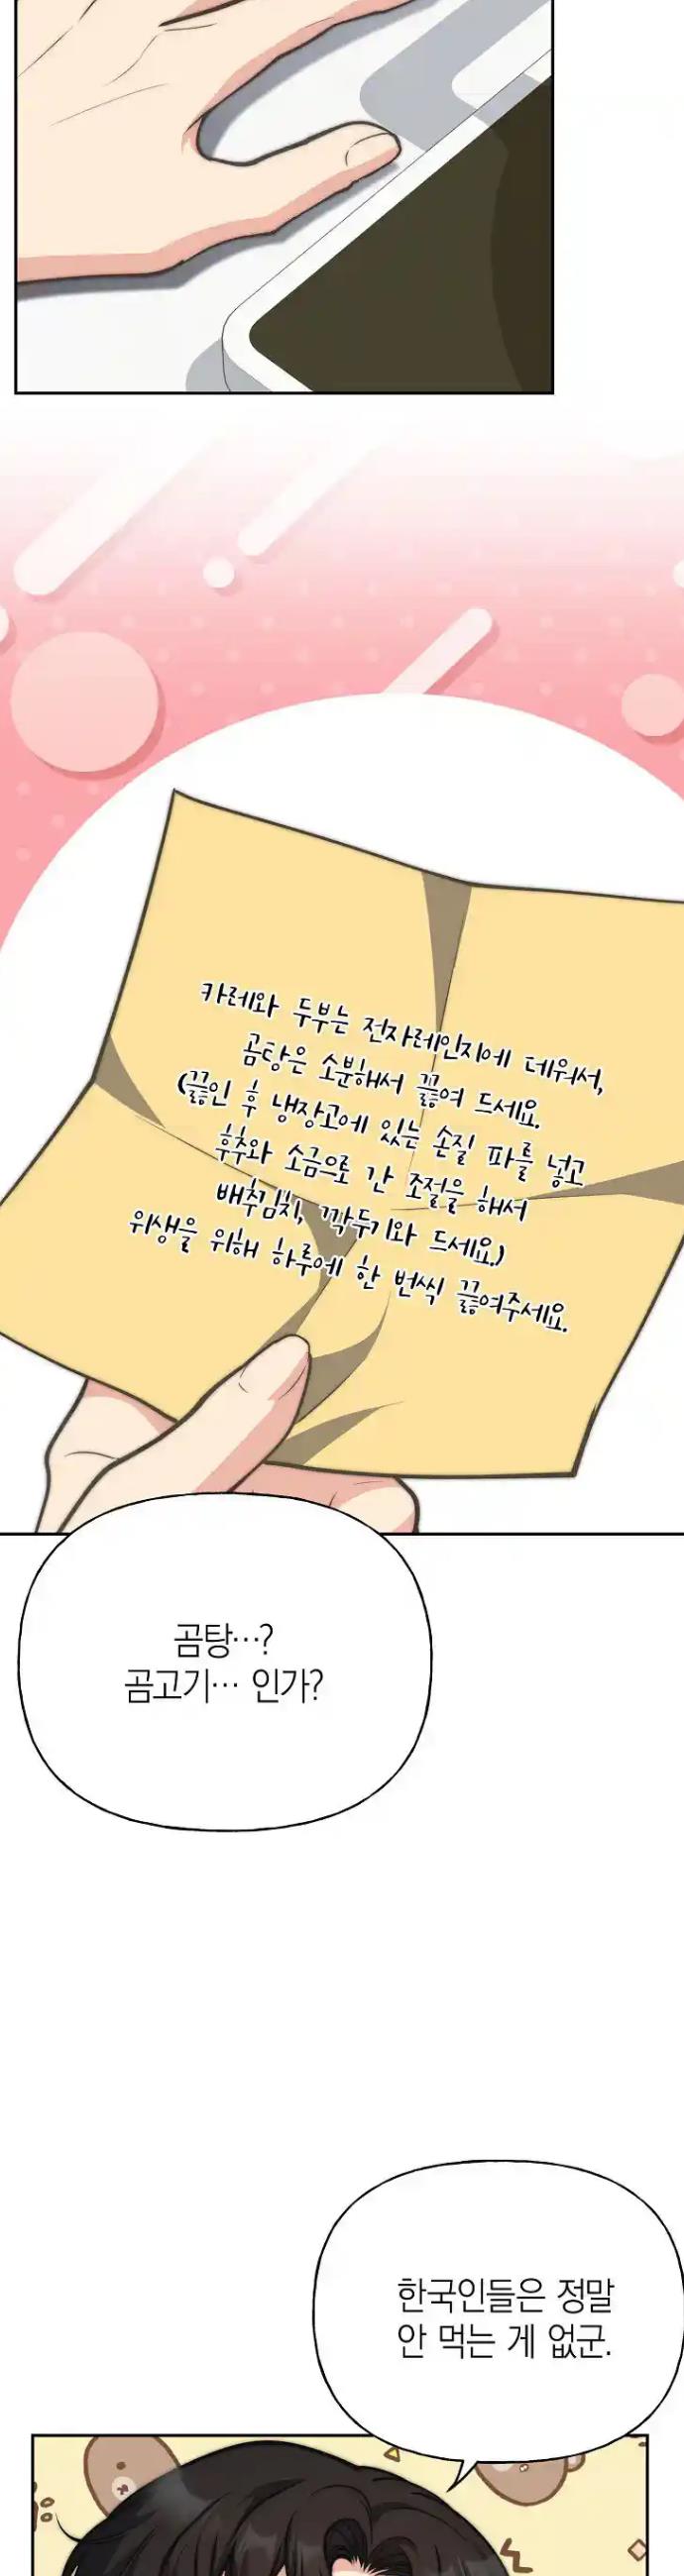 카레와 두부는 전자레인지에 데워서,
곰탕은 소분해서 끓여 드세요.
(끓인 후 냉장고에 있는 손질 파를 넣고
후추와 소금으로 간 조절을 해서
배추김치, 깍두기와 드세요.)
위생을 위해 하루에 한 번씩 끓여주세요.
곰탕…?
곰고기… 인가?
한국인들은 정말
안 먹는 게 없군.